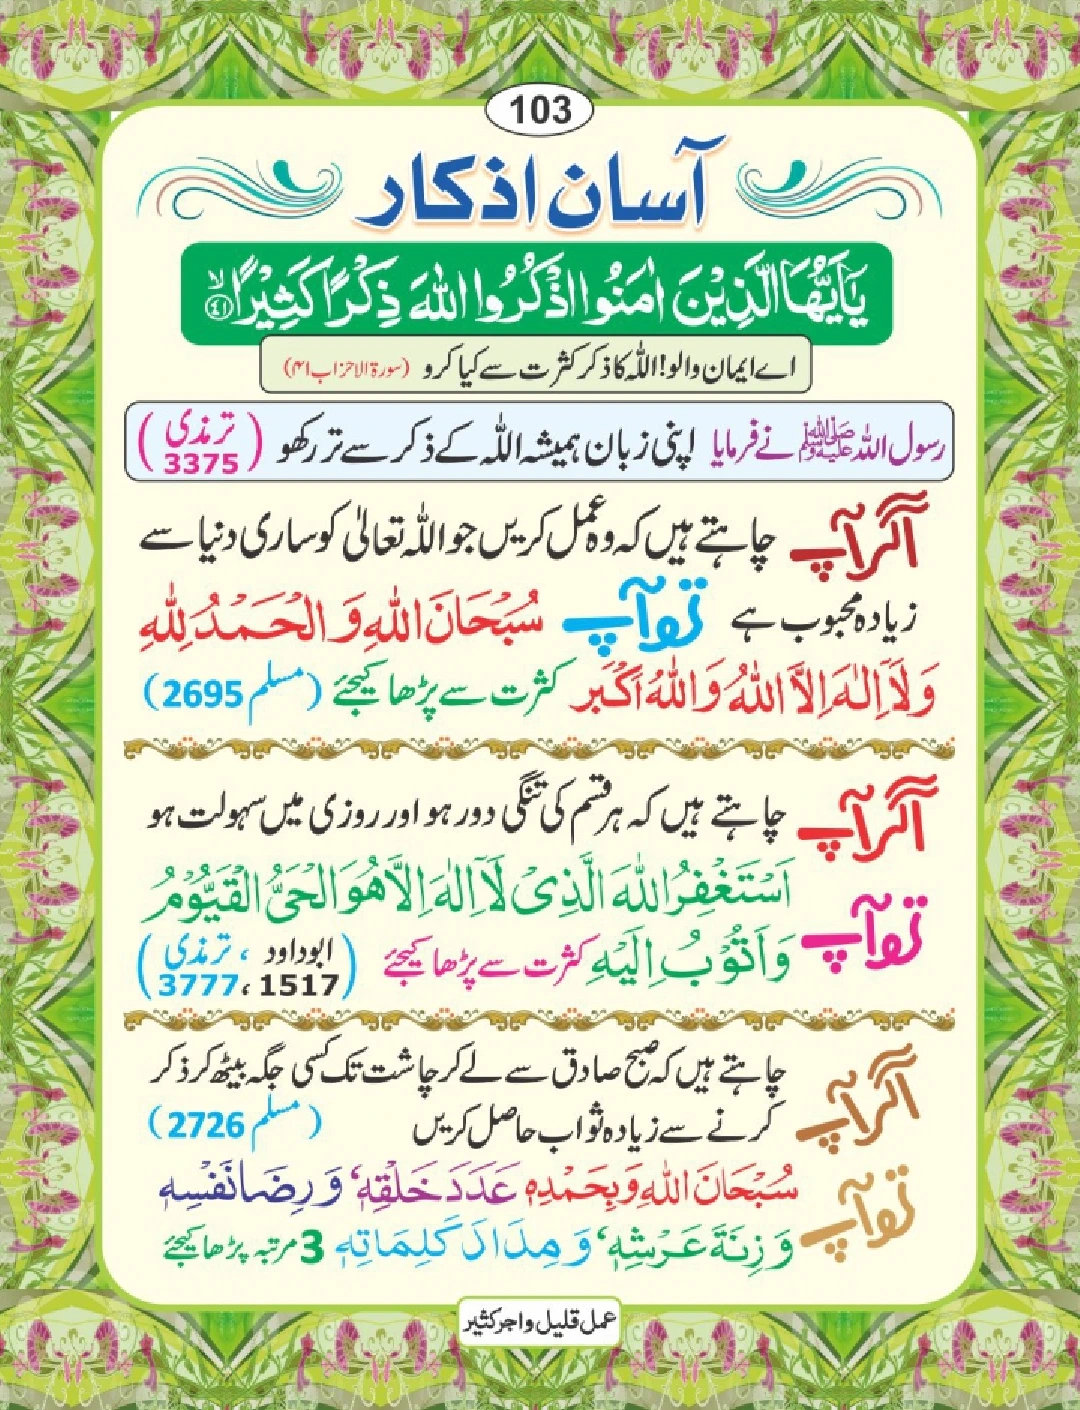 103
آسان اذکار
يٰۤاَيُّهَا الَّذِيْنَ اٰمَنُوا اذْكُرُوا اللّٰهَ ذِكْرًا كَثِيْرًا ۙ﴿۴۱﴾
اے ایمان والو! اللہ کا ذکر کثرت سے کیا کرو (سورۃ الاحزاب ۴۱)
رسول اللہ ﷺ نے فرمایا اپنی زبان ہمیشہ اللہ کے ذکر سے تر رکھو (ترمذی 3375)
اگر آپ چاہتے ہیں کہ وہ عمل کریں جو اللہ تعالیٰ کو ساری دنیا سے
زیادہ محبوب ہے تو آپ سُبْحَانَ اللّٰهِ وَ الْحَمْدُ لِلّٰهِ
وَلَاۤ اِلٰهَ اِلَّا اللّٰهُ وَاللّٰهُ اَكْبَر کثرت سے پڑھا کیجئے (مسلم 2695)
اگر آپ چاہتے ہیں کہ ہر قسم کی تنگی دور ہو اور روزی میں سہولت ہو
تو آپ اَسْتَغْفِرُ اللّٰهَ الَّذِىْ لَاۤ اِلٰهَ اِلَّا هُوَ الْحَىُّ الْقَيُّوْمُ
وَ اَتُوْبُ اِلَيْهِ کثرت سے پڑھا کیجئے (ابوداود 1517، ترمذی 3777)
اگر آپ چاہتے ہیں کہ صبح صادق سے لے کر چاشت تک کسی جگہ بیٹھ کر ذکر
کرنے سے زیادہ ثواب حاصل کریں (مسلم 2726)
تو آپ سُبْحَانَ اللّٰهِ وَبِحَمْدِهٖ عَدَدَ خَلْقِهٖ، وَ رِضَا نَفْسِهٖ
وَ زِنَةَ عَرْشِهٖ، وَ مِدَادَ كَلِمَاتِهٖ 3 مرتبہ پڑھا کیجئے
عمل قلیل و اجر کثیر